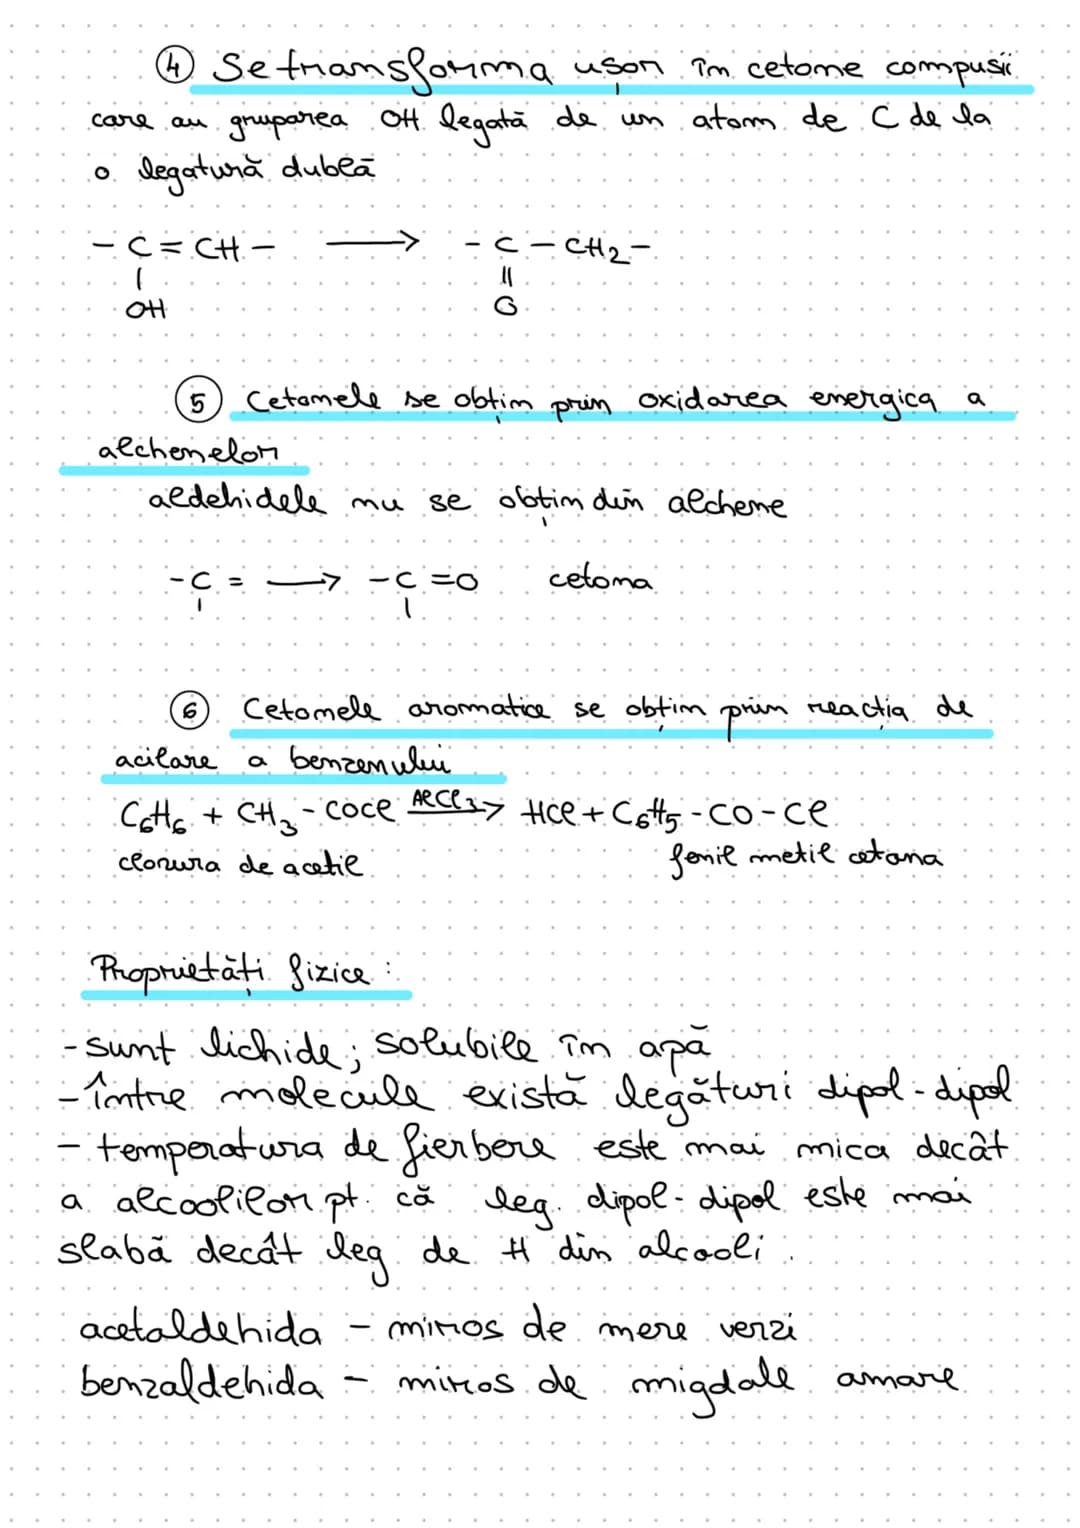 ④ Se transforma ușor în cetone compusii
care au gruparea OH legată de un atom de C de la
o legatură dublă
- C = CH - ⟶ - C - CH2 -
| ||
OH O
⑤ Cetonele se obțin prin oxidarea energica a
alchenelor
aldehidele nu se obțin din alchene
- C = ⟶ - C = O cetona
| |
⑥ Cetonele aromatice se obțin prin reactia de
acilare a benzenului
C6H6 + CH3 - COCl AlCl3⟶ HCl + C6H5 - CO - Cl
clorura de acetil fenil metil cetona
Proprietăți fizice :
- sunt lichide; solubile în apă
- între molecule există legături dipol - dipol
- temperatura de fierbere este mai mica decât
a alcoolilor pt. că leg. dipol - dipol este mai
slabă decât leg de H din alcooli.
acetaldehida - miros de mere verzi
benzaldehida - miros de migdale amare